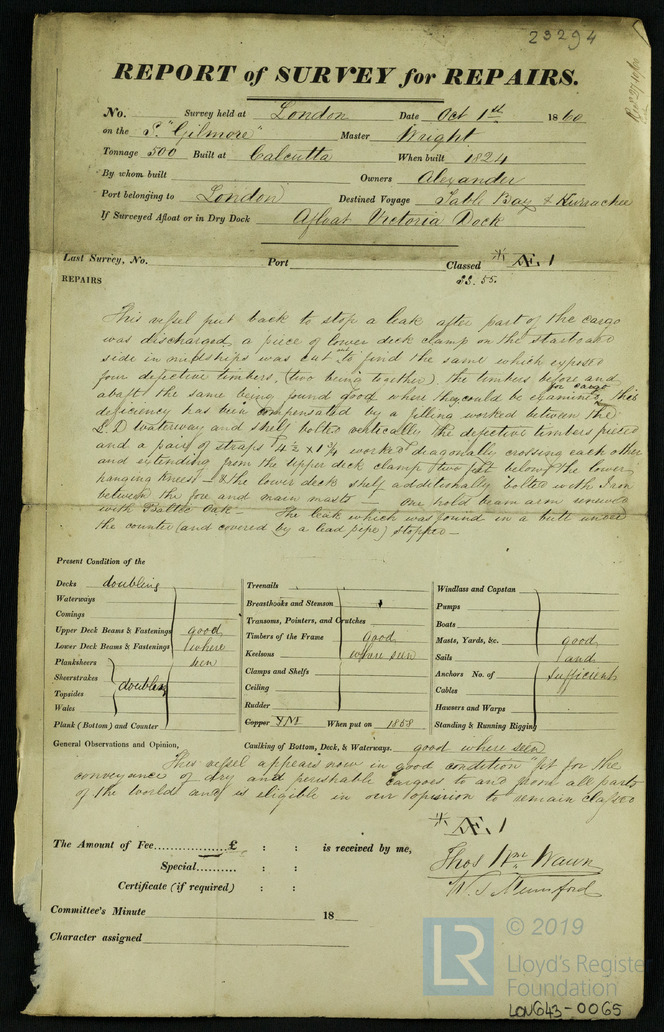 23294
REPORT of SURVEY for REPAIRS.
No. Survey held at London Date Oct 1st 1860
on the S. "Gilmore" Master Wright
Tonnage 500 Built at Calcutta When built 1824
By whom built Owners Alexander
Port belonging to London Destined Voyage Table Bay & Kurrachee
If Surveyed Afloat or in Dry Dock Afloat Victoria Dock
Last Survey, No. Port Classed * Æ. 1
33. 55.
REPAIRS
This vessel put back to stop a leak after part of the cargo
was discharged, a piece of lower deck clamp on the starboard
side in midships was cut out to find the same which exposed
four defective timbers, (two being together) the timbers before and
abaft the same being found good where they could be examined for cargo this
deficiency has been compensated by a filling worked between the
L.D waterway and shelf bolted vertically the defective timbers pieced
and a pair of straps 4½ x 1¾ worked diagonally crossing each other
and extending from the upper deck clamp two feet below the lower
hanging knees - & the lower deck shelf additionally bolted with Iron
between the fore and main masts - one hold beam arm renewed
with Baltic Oak - The leak which was found in a butt under
the counter (and covered by a lead pipe) stopped -
Present Condition of the
Decks doubling
Waterways
Comings
Upper Deck Beams & Fastenings good
Lower Deck Beams & Fastenings where
Planksheers seen
Sheerstrakes
Topsides doubling
Wales
Plank (Bottom) and Counter
Treenails
Breasthooks and Stemson
Transoms, Pointers, and Crutches
Timbers of the Frame good
Keelsons where seen
Clamps and Shelfs
Ceiling
Rudder
Copper YM When put on 1858
Windlass and Capstan
Pumps
Boats
Masts, Yards, &c. good
Sails and
Anchors No. of sufficient
Cables
Hawsers and Warps
Standing & Running Rigging
General Observations and Opinion, Caulking of Bottom, Deck, & Waterways. good where seen
This vessel appears now in good condition fit for the
conveyance of dry and perishable cargoes to and from all parts
of the world and is eligible in our opinion to remain classed
* Æ. 1
The Amount of Fee £ : : is received by me,
Special : :
Certificate (if required) : :
Thos Wm Wawn
W. S. Mumford
Committee's Minute 18
Character assigned
© 2019
LR
Lloyd's Register
Foundation
LON643-0065